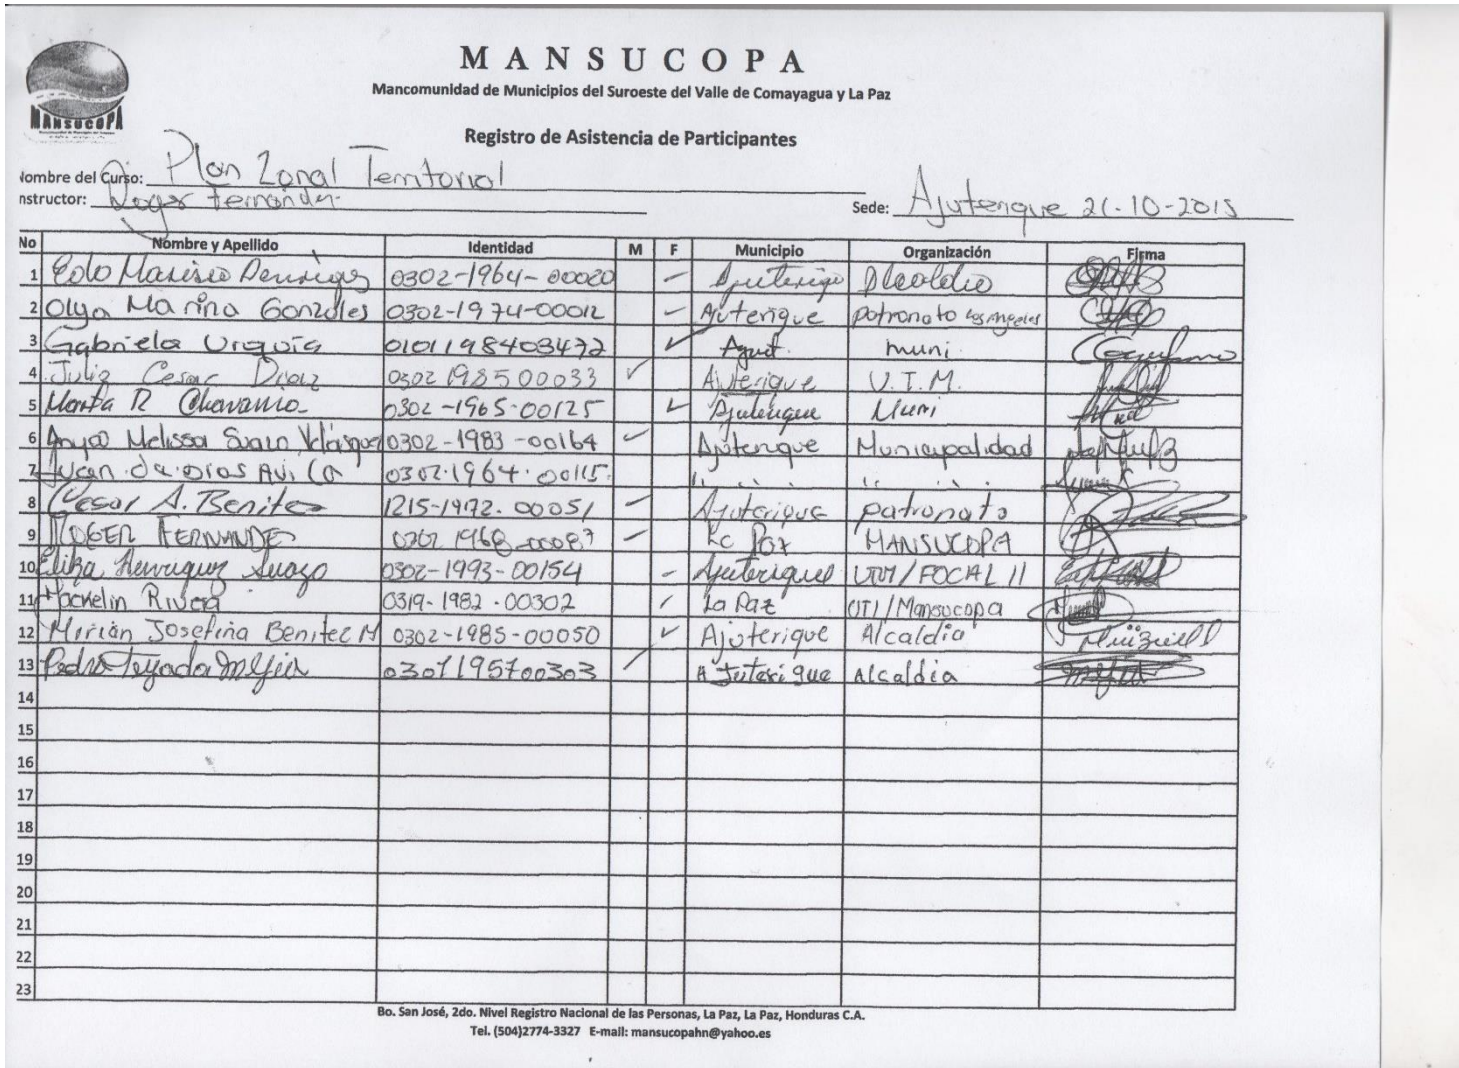 MANSUCOPA
Mancomunidad de Municipios del Suroeste del Valle de Comayagua y La Paz
MANSUCOPA
Registro de Asistencia de Participantes
Nombre del Curso: Plan Zonal Territorial
nstructor: Roger Fernández Sede: Ajuterique 21-10-2015
No Nombre y Apellido Identidad M F Municipio Organización Firma
1 0302-1964-00020 Ajuterique Alcaldia
2 Olga Marina Gonzales 0302-1974-00012 Ajuterique patronato Los Angeles
3 Gabriela Urquía 0101198403472 Ajut. muni.
4 Julio Cesar Diaz 0302 1985 00033 Ajuterique U.T.M.
5 Marta R 0302-1965-00125 Ajuterique Muni
6 Melissa Suazo Velásquez 0302-1983-00164 Ajuterique Municipalidad
7 Juan de Dios Avila 0302-1964-00115
8 Cesar A. Benitez 1215-1972-00051 Ajuterique patronato
9 ROGER FERNANDEZ La Paz MANSUCOPA
10 Henriquez Suazo 0302-1993-00154 Ajuterique UTM/FOCAL II
11 Jackelin Rivera 0319-1982-00302 La Paz UTI/Mansucopa
12 Mirian Josefina Benitez M 0302-1985-00050 Ajuterique Alcaldia
13 Pedro Tejada Mejia 0301195700303 Ajuterique Alcaldia
14
15
16
17
18
19
20
21
22
23
Bo. San José, 2do. Nivel Registro Nacional de las Personas, La Paz, La Paz, Honduras C.A.
Tel. (504)2774-3327 E-mail: mansucopahn@yahoo.es